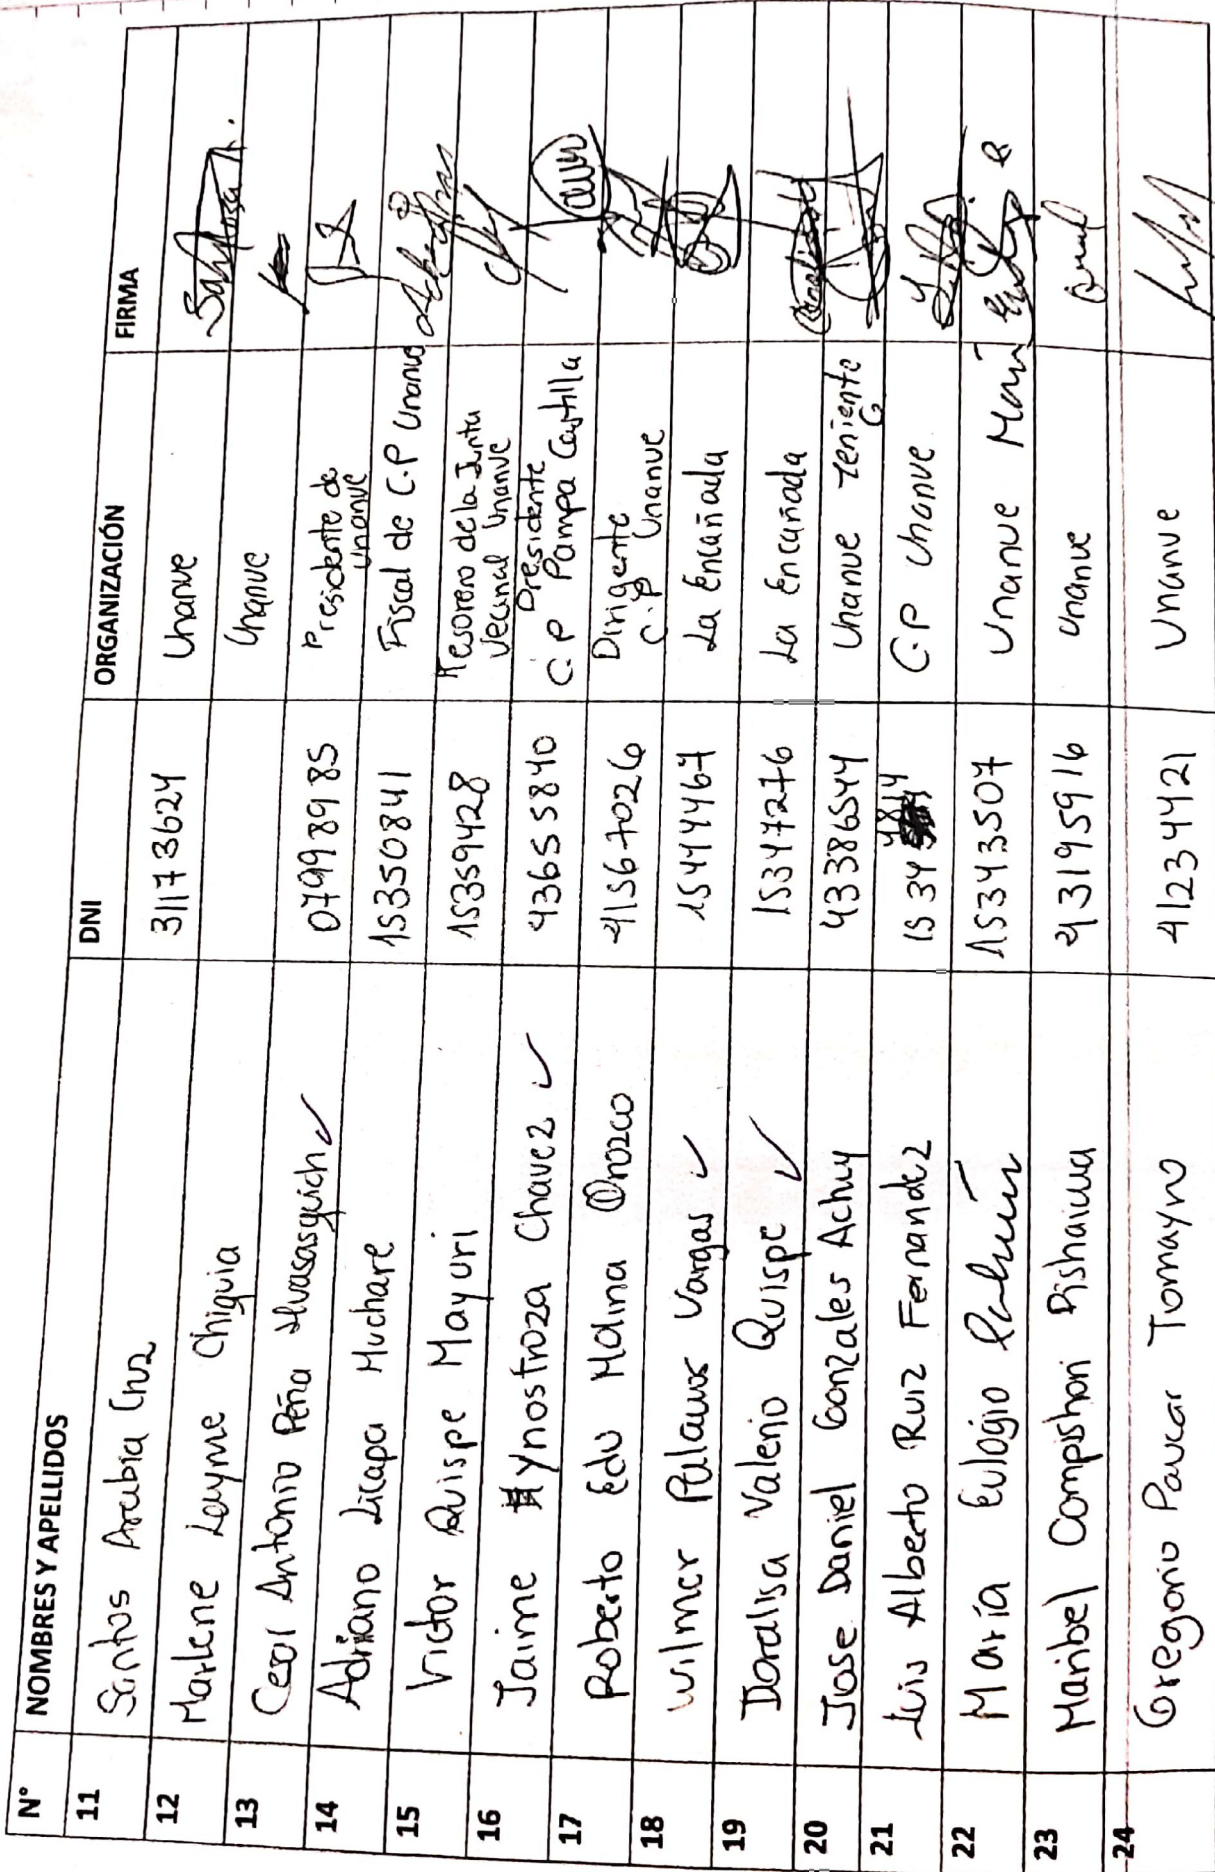 N° NOMBRES Y APELLIDOS DNI ORGANIZACIÓN FIRMA
11 Santos Arabia Cruz 31173624 Unanue
12 Marlene Layme Chiguia Unanue
13 Cesar Antonio Peña 07998985 Presidente de
Unanue
14 Adriano Licapa Huchare 15350841 Fiscal de C.P Unanue
15 Victor Quispe Mayuri 15359428 Tesorero de la Junta
Vecinal Unanue
16 Jaime Ynostroza Chavez 43655840 Presidente
C.P Pampa Castilla
17 Roberto Edu Molina Orozco 41567026 Dirigente
C.P Unanue
18 Wilmer Vargas 15444467 La Encañada
19 Doralisa Valerio Quispe 15347276 La Encañada
20 Jose Daniel Gonzales Achuy 43386544 Unanue Teniente G
21 Luis Alberto Ruiz Fernandez 15344814 C.P Unanue
22 María Eulogio 15343507 Unanue
23 Maribel 43195916 Unanue
24 Gregorio Paucar Tomayro 41234421 Unanue